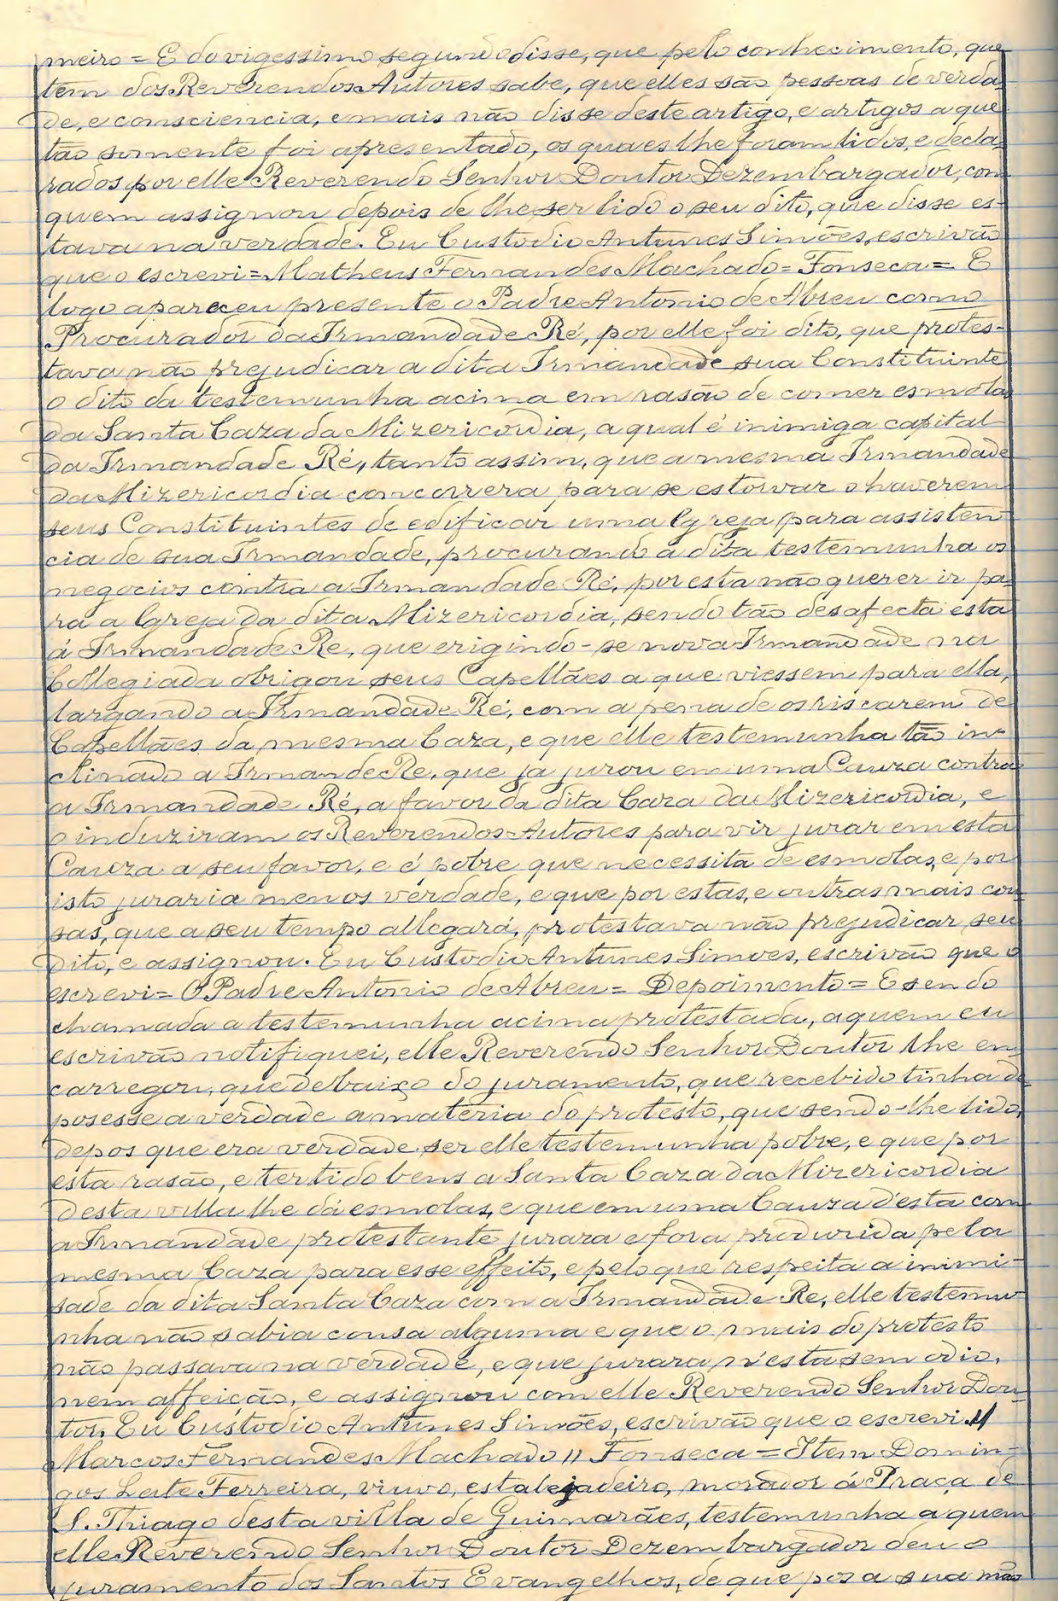 meiro = E do vigessimo segundo disse, que pelo conhecimento, que
tem dos Reverendos Autores sabe, que elles são pessoas de verda-
de, e consciencia, e mais não disse deste artigo, e artigos a que
tão somente foi apresentado, os quaes lhe foram lidos, e decla-
rados por elle Reverendo Senhor Doutor Dezembargador, com
quem assignou depois de lhe ser lido o seu dito, que disse es-
tava na verdade. Eu Custodio Antunes Simões, escrivão
que o escrevi = Matheus Fernandes Machado = Fonseca = E
logo apareceu presente o Padre Antonio de Abreu como
Procurador da Irmandade Ré, por elle foi dito, que protes-
tava não prejudicar a dita Irmandade sua Constituinte
o dito da testemunha acima em rasão de comer esmolas
da Santa Caza da Mizericordia, a qual é inimiga capital
da Irmandade Ré, tanto assim, que a mesma Irmandade
da Mizericordia concorrera para se estorvar o haverem
seus Constituintes de edificar uma Igreja para assisten-
cia de sua Irmandade, procurando a dita testemunha os
negocios contra a Irmandade Ré, por esta não querer ir pa-
ra a Igreja da dita Mizericordia, sendo tão desafecta esta
á Irmandade Ré, que erigindo-se nova Irmandade na
Collegiada obrigou seus Capellães a que viessem para ella,
largando a Irmandade Ré, com a pena de os riscarem de
Capellães da mesma Caza, e que elle testemunha tão in-
clinado a Irmande Ré, que ja jurou em uma Cauza contra
a Irmandade Ré, a favor da dita Caza da Mizericordia, e
o induziram os Reverendos Autores para vir jurar em esta
Cauza a seu favor, e é pobre que necessita de esmolas, e por
isto juraria menos verdade, e que por estas, e outras mais cou-
sas, que a seu tempo allegará, protestava não prejudicar seu
dito, e assignou. Eu Custodio Antunes Simoes, escrivão que o
escrevi = O Padre Antonio de Abreu = Depoimento = E sendo
chamada a testemunha acima protestada, a quem eu
escrivão notifiquei, elle Reverendo Senhor Doutor lhe en-
carregou, que debaixo do juramento, que recebido tinha de-
posesse a verdade a materia do protesto, que sendo-lhe lido,
depos que era verdade ser elle testemunha pobre, e que por
esta rasão, e ter tido bens a Santa Caza da Mizericordia
desta villa lhe dá esmolas, e que em uma Cauza d'esta com
a Irmandade protestante jurara e fora produzida pela
mesma Caza para esse effeito, e pelo que respeita a inimi-
sade da dita Santa Caza com a Irmandade Ré, elle testemu-
nha não sabia cousa alguma e que o mais do protesto
não passava na verdade, e que jurara n'esta sem odio,
nem affeição, e assignou com elle Reverendo Senhor Dou-
tor. Eu Custodio Antunes Simões, escrivão que o escrevi //
Marcos Fernandes Machado // Fonseca = Item Domin-
gos Leite Ferreira, viuvo, estalejadeiro, morador á Praça de
S. Thiago desta villa de Guimarães, testemunha a quem
elle Reverendo Senhor Doutor Dezembargador deu o
juramento dos Santos Evangelhos, de que pos a sua mão